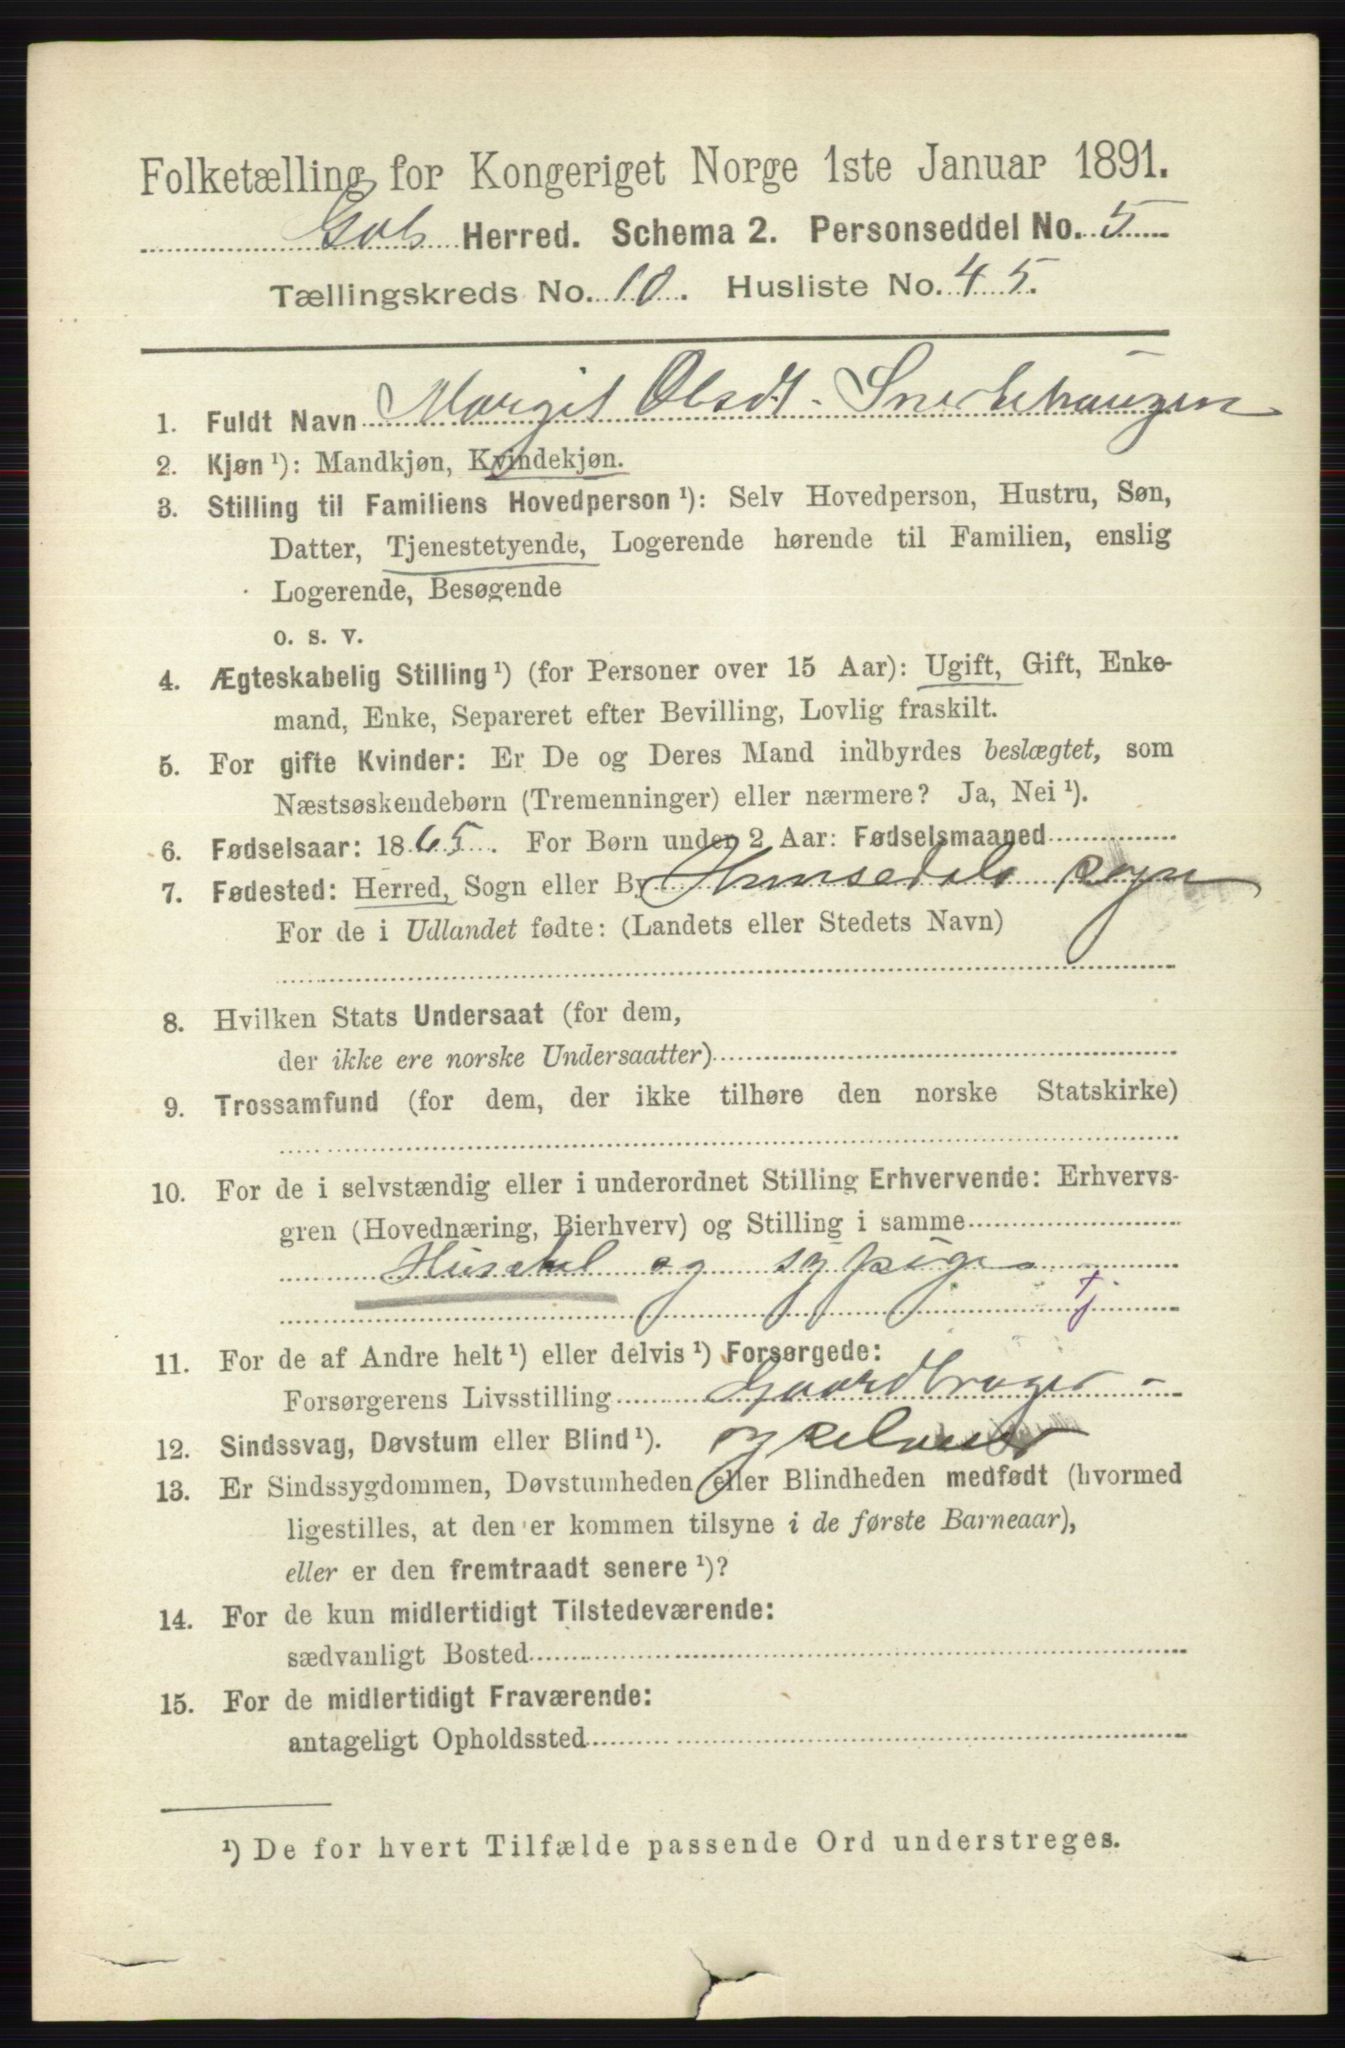 Folketælling for Kongeriget Norge 1ste Januar 1891.
Gols Herred. Schema 2. Personseddel No. 5
Tællingskreds No. 10. Husliste No. 45.
1. Fuldt Navn Margit Olsdt.
2. Kjøn ¹): Mandkjøn, Kvindekjøn.
3. Stilling til Familiens Hovedperson ¹): Selv Hovedperson, Hustru, Søn,
Datter, Tjenestetyende, Logerende hørende til Familien, enslig
Logerende, Besøgende
o. s. v.
4. Ægteskabelig Stilling ¹) (for Personer over 15 Aar): Ugift, Gift, Enke-
mand, Enke, Separeret efter Bevilling, Lovlig fraskilt.
5. For gifte Kvinder: Er De og Deres Mand indbyrdes beslægtet, som
Næstsøskendebørn (Tremenninger) eller nærmere? Ja, Nei ¹).
6. Fødselsaar: 1865. For Børn under 2 Aar: Fødselsmaaned
7. Fødested: Herred, Sogn eller By Hemsedals sogn
For de i Udlandet fødte: (Landets eller Stedets Navn)
8. Hvilken Stats Undersaat (for dem,
der ikke ere norske Undersaatter)
9. Trossamfund (for dem, der ikke tilhøre den norske Statskirke)
10. For de i selvstændig eller i underordnet Stilling Erhvervende: Erhvervs-
gren (Hovednæring, Bierhverv) og Stilling i samme
og sypige
tj
11. For de af Andre helt ¹) eller delvis ¹) Forsørgede:
Forsørgerens Livsstilling Gaardbruger
12. Sindssvag, Døvstum eller Blind ¹). og selveier
13. Er Sindssygdommen, Døvstumheden eller Blindheden medfødt (hvormed
ligestilles, at den er kommen tilsyne i de første Barneaar),
eller er den fremtraadt senere ¹)?
14. For de kun midlertidigt Tilstedeværende:
sædvanligt Bosted
15. For de midlertidigt Fraværende:
antageligt Opholdssted
¹) De for hvert Tilfælde passende Ord understreges.